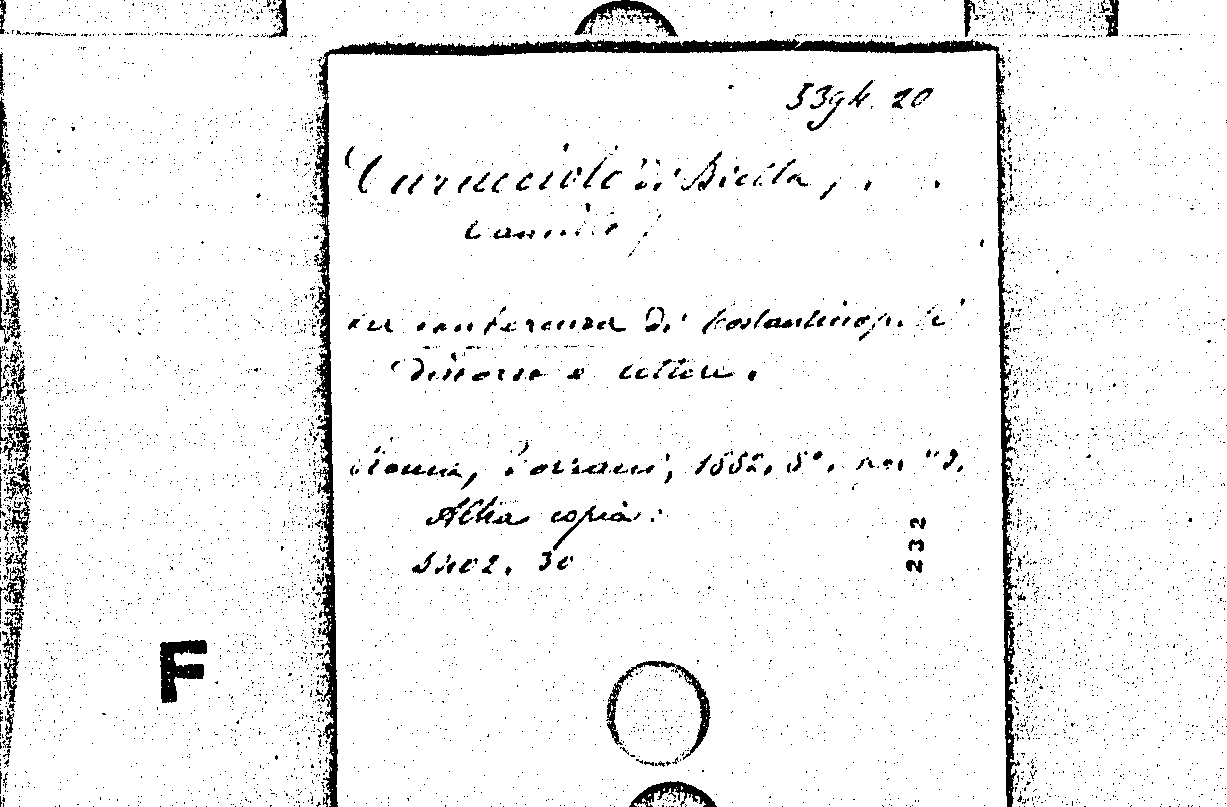 5394. 20
Caracciolo di Biella,
Camillo
La conferenza di Costantinopoli
Discorso e lettere.
Roma, 1882. 8°.
Altra copia:
5402. 30
232
F